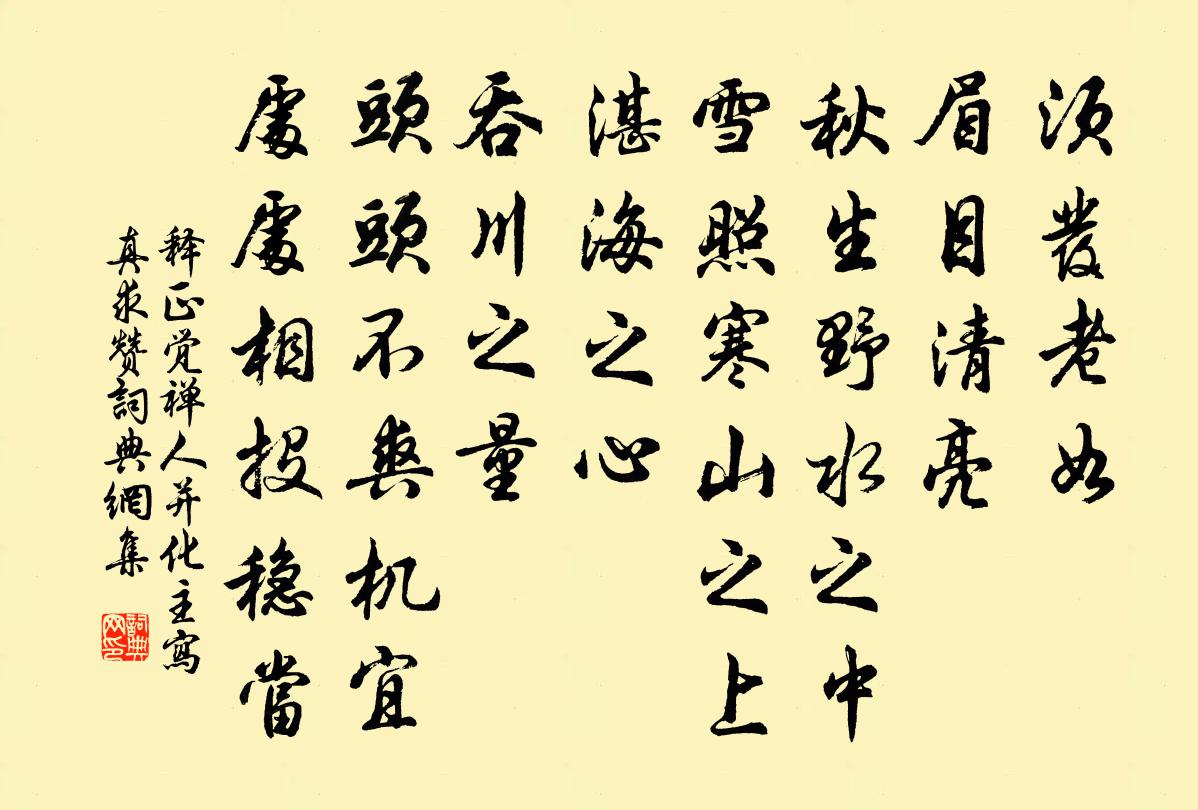 须發老如
眉目清亮
秋生野水之中
雪照寒山之上
湛海之心
吞川之量
頭頭不爽机宜
處處相投穏當
释正觉禅人并化主寫
真求赞詞典網集
詞典
网印